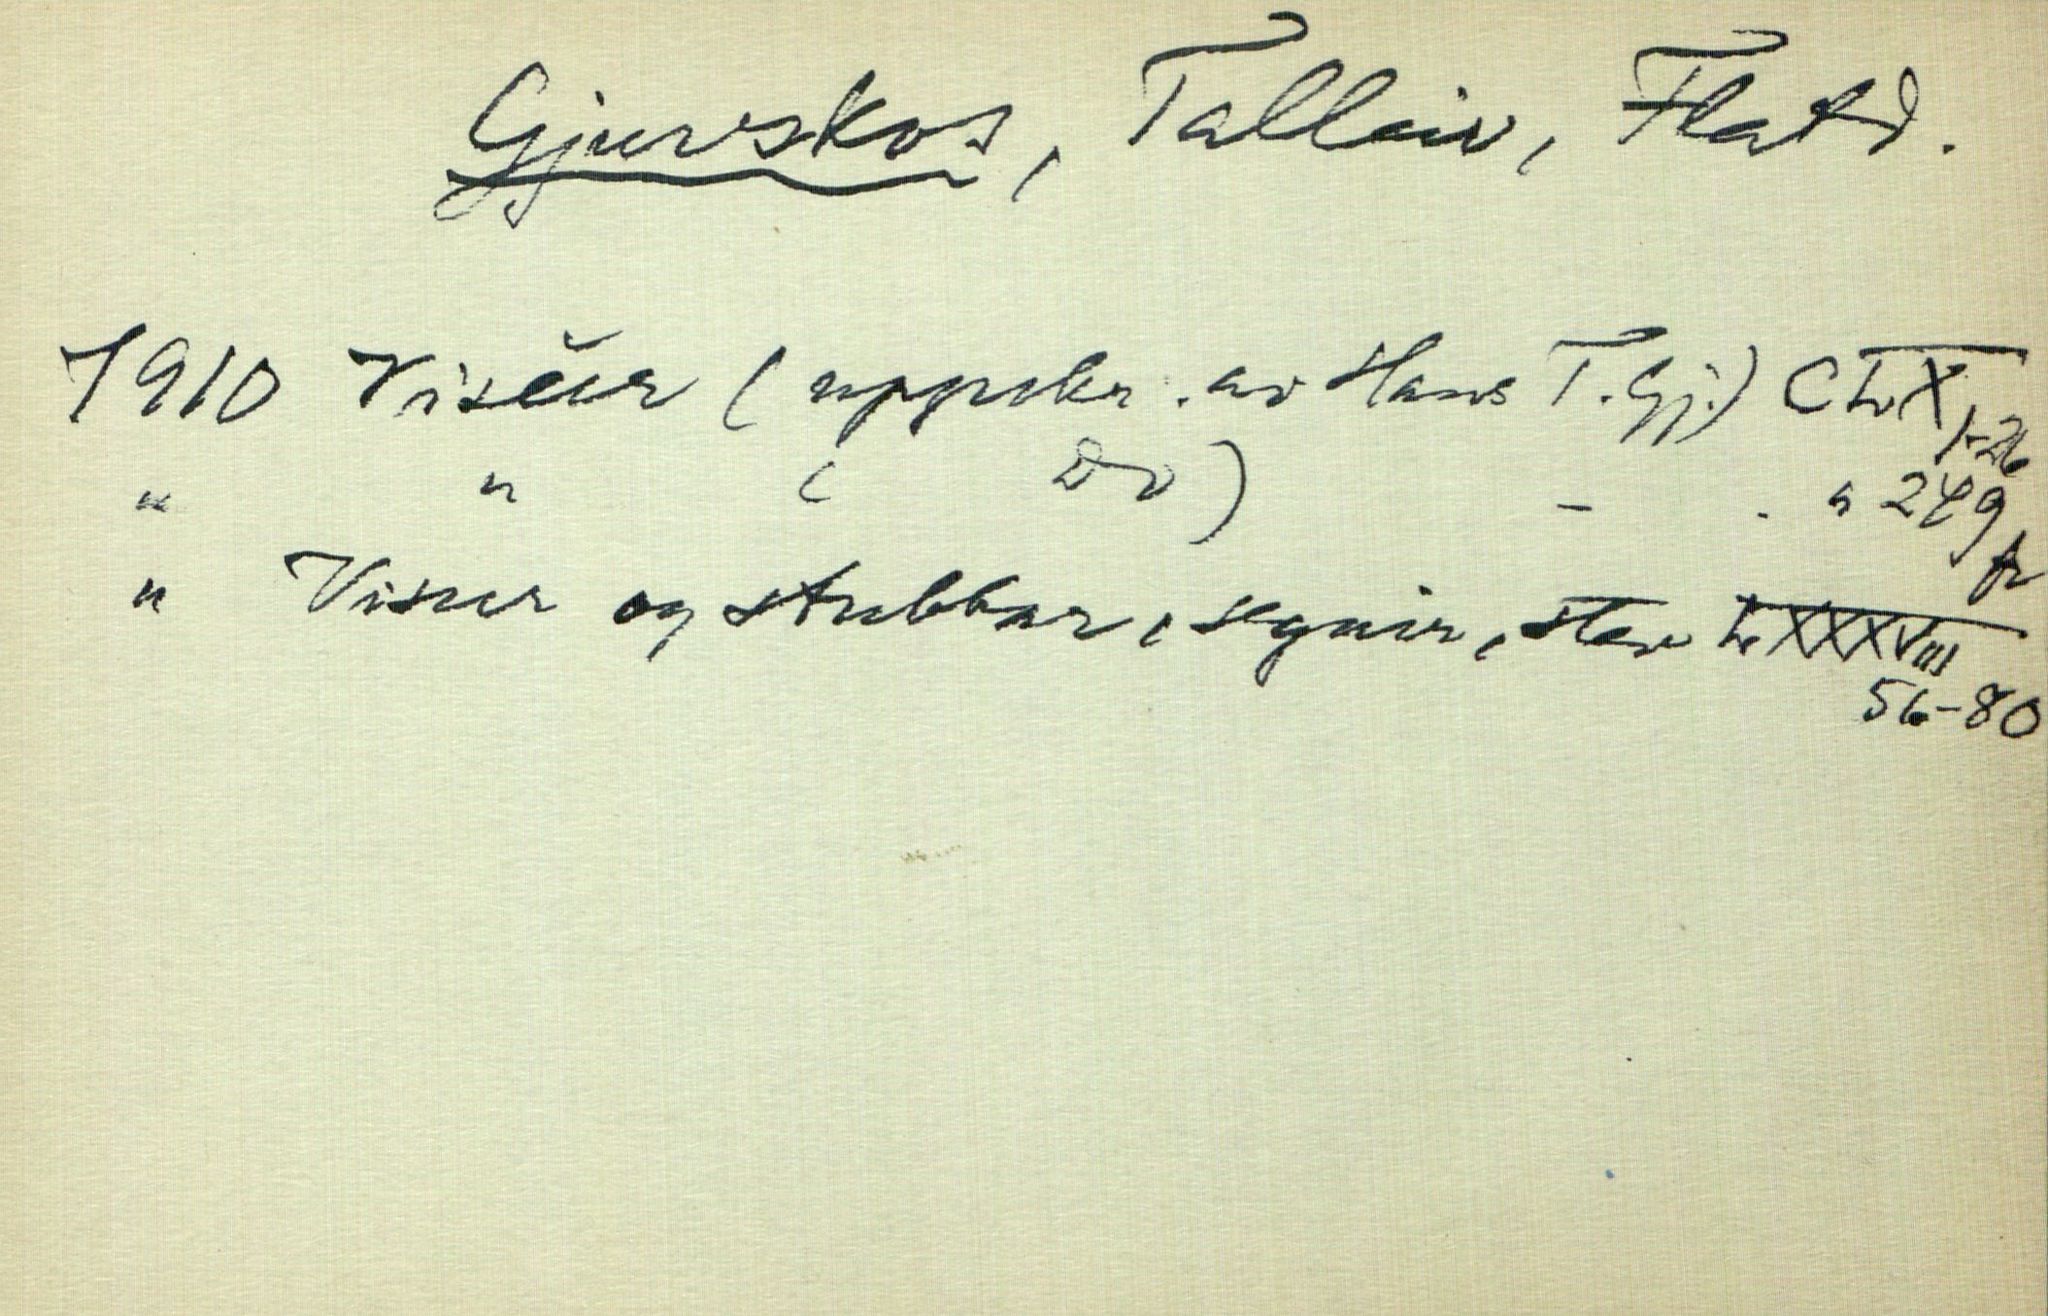 Gjuvskos,Талleiv, Flatd.
1910 Visur (uppskr. av Hans T. Gj.) C LXX
1-26
" " ( Do ) - . " 249
fr
" Visur og stubbar, segnir, stev LXXXVIII
56-80